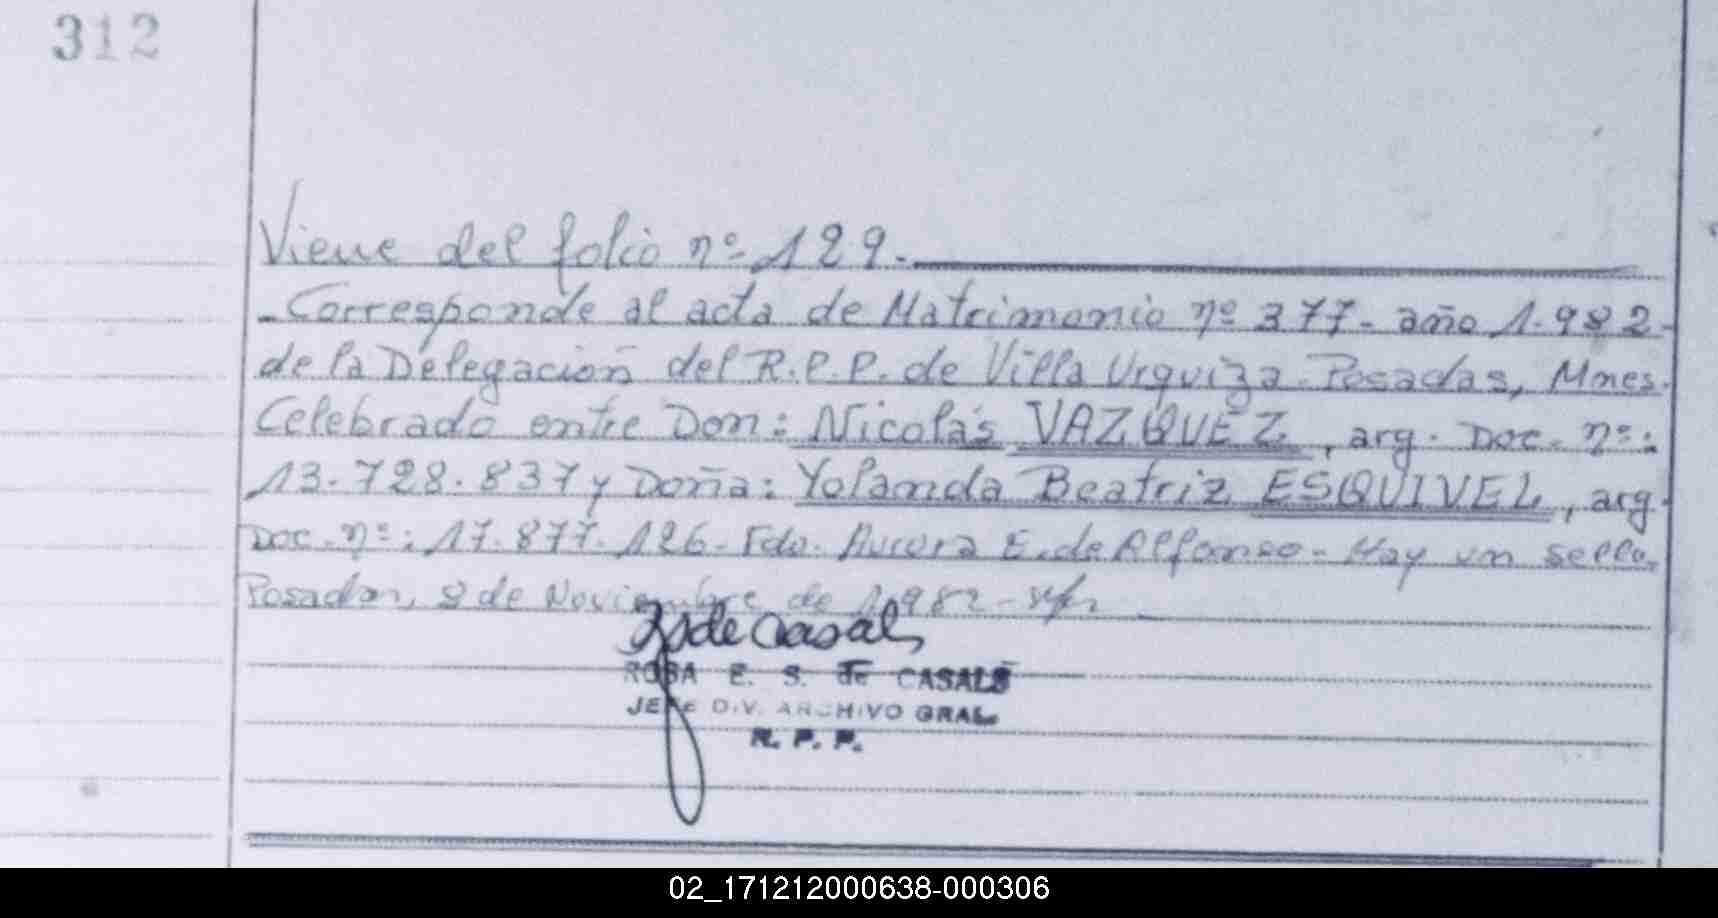 312
Viene del folio nº 129.-
-Corresponde al acta de Matrimonio nº 377- año 1.982-
de la Delegación del R.P.P. de Villa Urquiza- Posadas, Mnes.
Celebrado entre Don: Nicolás VAZQUEZ, arg. Doc. nº:
13.728.837 y Doña: Yolanda Beatriz ESQUIVEL, arg.
Doc. nº: 17.877.126- Fdo. Aurora E. de Alfonso- Hay un sello.
Posadas, 8 de Noviembre de 1.982-
de Casals
ROSA E. S. de CASALS
JEFE DIV. ARCHIVO GRAL.
R. P. P.
02_171212000638-000306